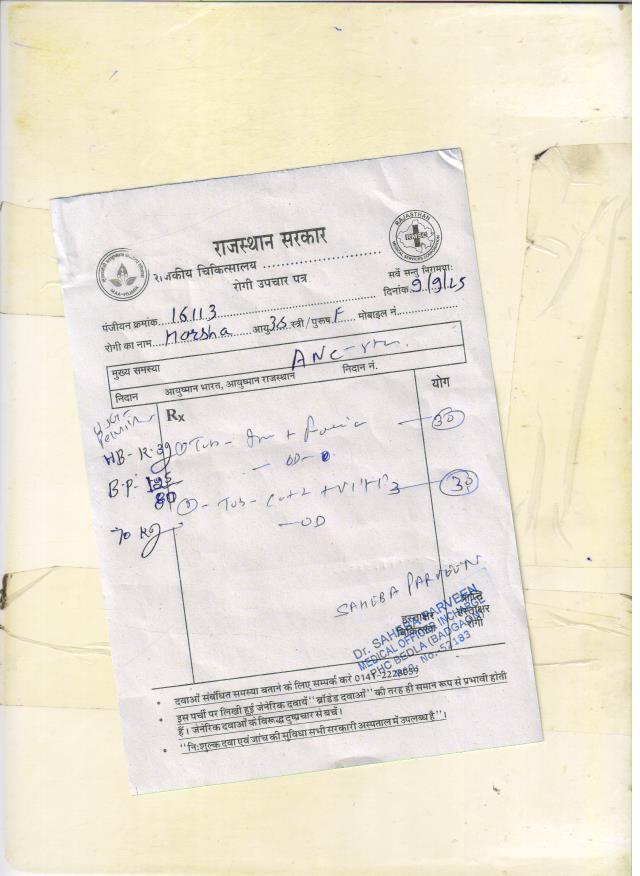 राजस्थान सरकार
राजकीय चिकित्सालय ....................
रोगी उपचार पत्र
RAJASTHAN
MEDICAL SERVICES CORPORATION
MAA-VOUCHER
सर्वे सन्तु निरामयाः
पंजीयन क्रमांक 16113 दिनांक 9/9/25
रोगी का नाम Harsha आयु 35 स्त्री / पुरूष F मोबाइल नं.
मुख्य समस्या ANC
निदान आयुष्मान भारत, आयुष्मान राजस्थान निदान नं.
Rx योग
HB - 12.3g ① Tab - + 30
OD
B.P. 125
80 ② - Tab - + VITD3 30
70 kg - OD
SAHEBA PARVEEN
हस्ताक्षर चिकित्सक
हस्ताक्षर रोगी
Dr. SAHEBA PARVEEN
MEDICAL OFFICER INCHARGE
PHC BEDLA (BADGAON)
No.- 52183
• दवाओं संबंधित समस्या बताने के लिए सम्पर्क करे 0141-2228059
• इस पर्ची पर लिखी हुई जेनेरिक दवायें "ब्रांडेड दवाओं" की तरह ही समान रूप से प्रभावी होती
हैं। जेनेरिक दवाओं के विरूद्ध दुष्प्रचार से बचें।
• "निःशुल्क दवा एवं जांच की सुविधा सभी सरकारी अस्पताल में उपलब्ध है"।